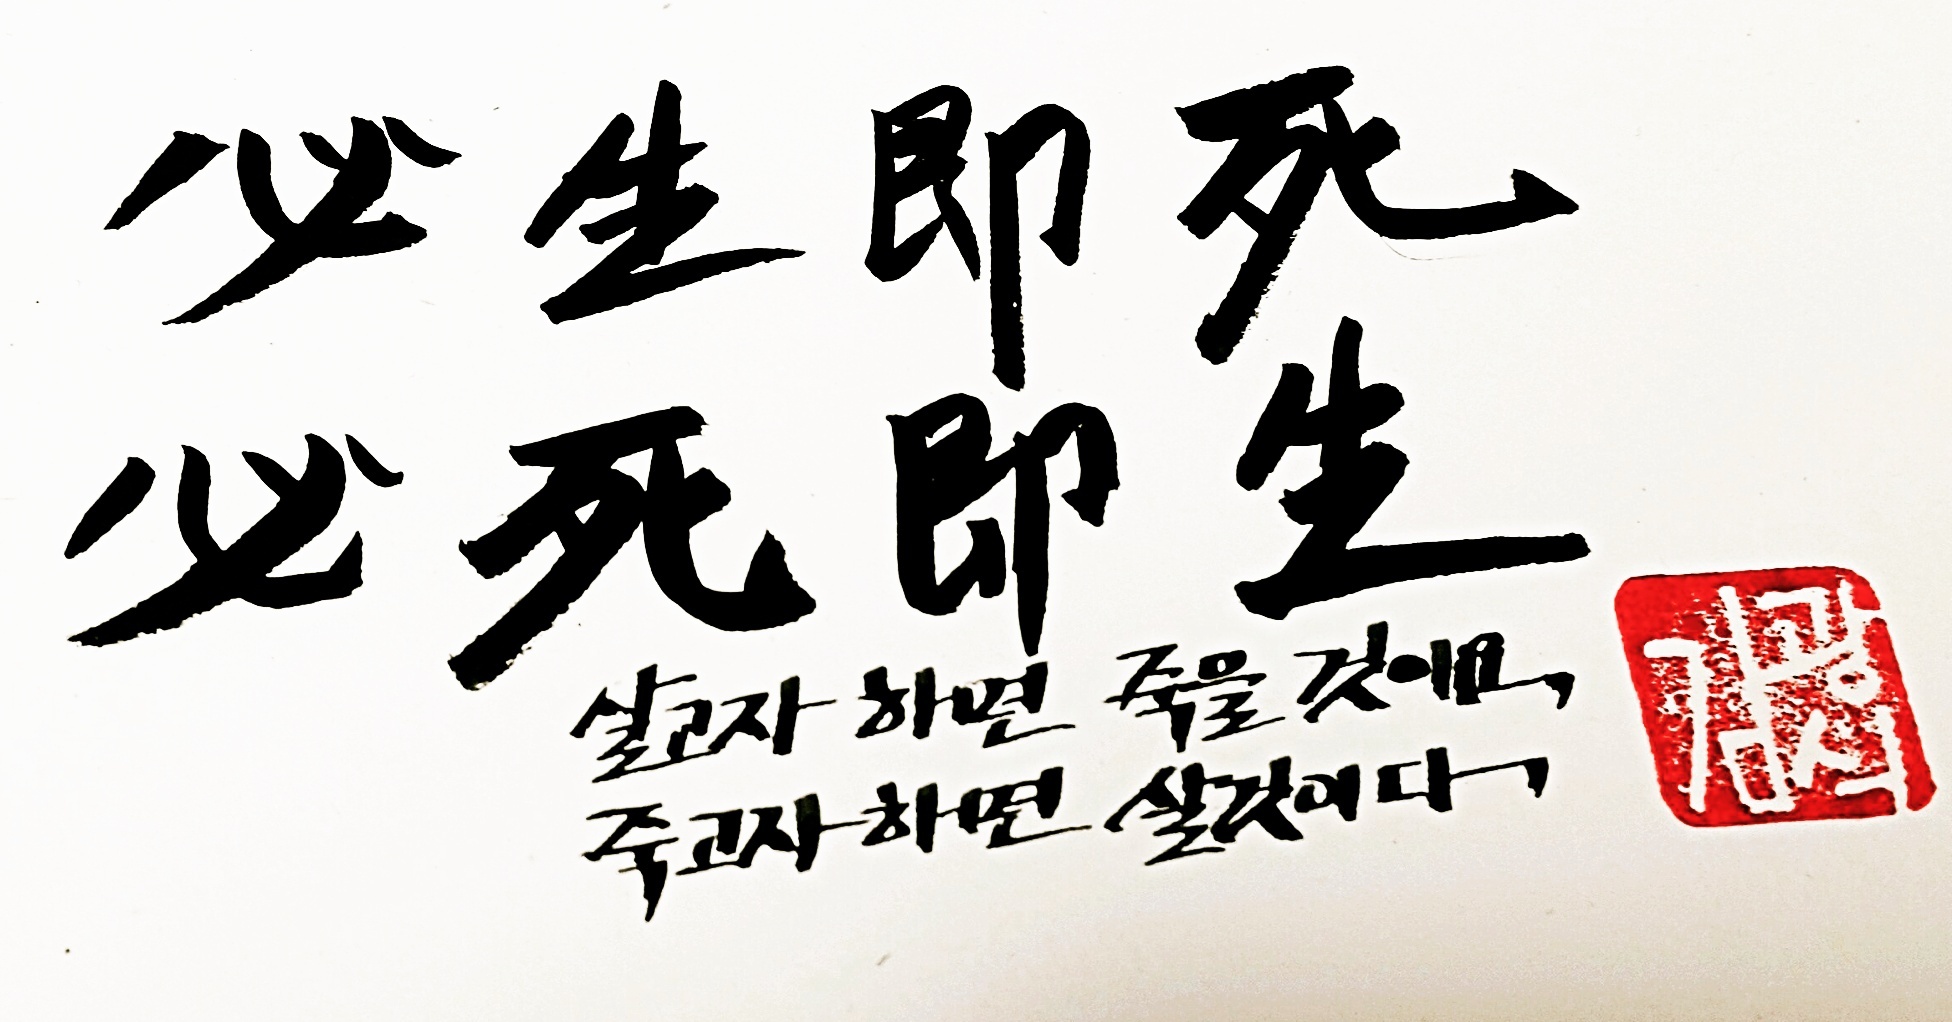 必生即死
必死即生
살고자 하면 죽을 것이며,
죽고자 하면 살것이다,